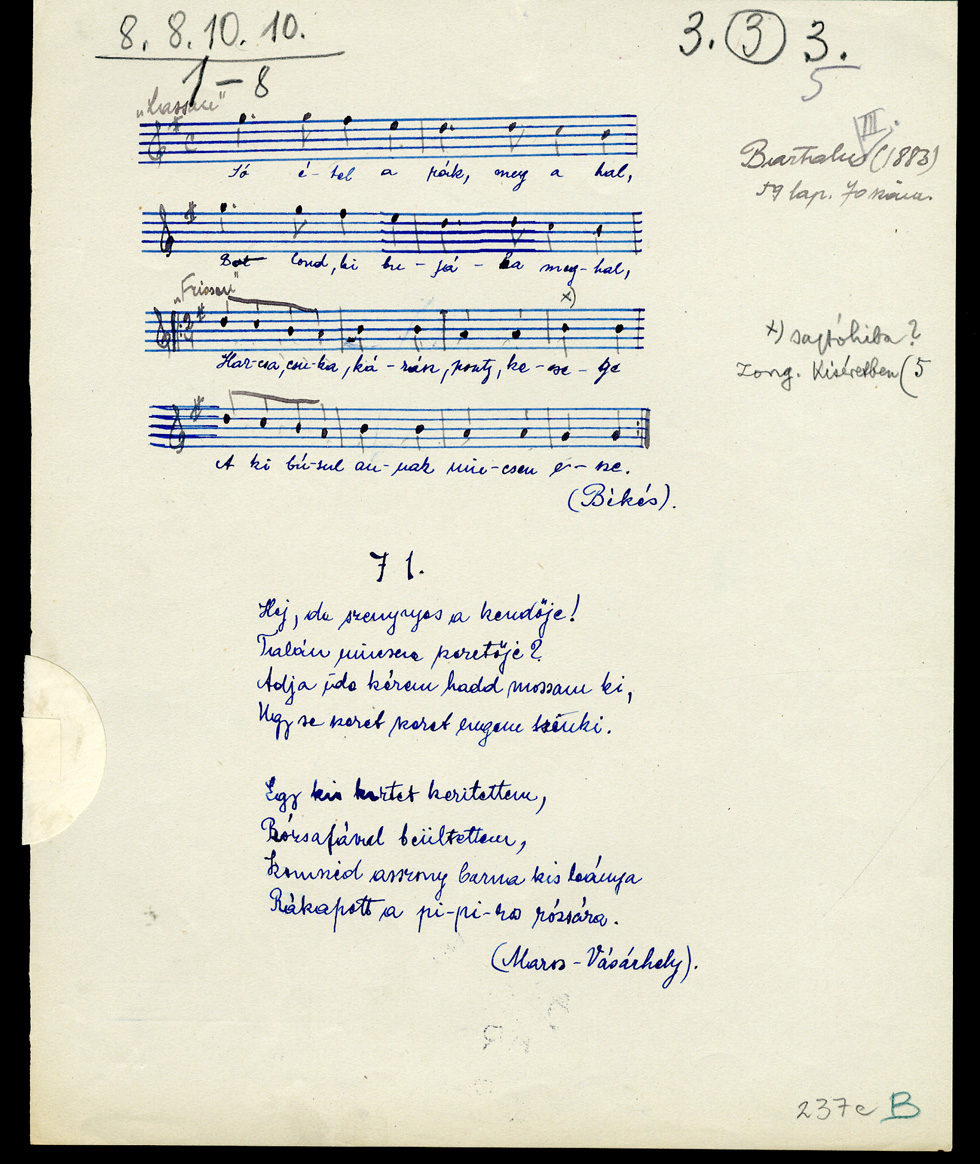 8. 8. 10. 10.
1-8
3. 3 3.
5
"Lassan"
III.
Bartalus (1883)
59 lap. 70 szám.
Jó é-tel a rák, meg a hal,
Bo lond, ki bu-já-ba meg-hal,
"Frissen"
x)
Har-csa, csu-ka, ká-rász, ponty, ke-sze-ge
x) sajtóhiba?
Zong. kíséretben (5
A ki bú-sul an-nak nin-csen e-sze.
(Békés).
71.
Hej, de szennyes a kendője!
Talán nincsen szeretője?
Adja ide kérem hadd mossam ki,
Ugy se szeret szeret engem senki.
Egy kis kertet keritettem,
Rózsafával beültettem,
Komszéd asszony barna kis leánya
Rákapott a pi-pi-ros rózsára.
(Maros-Vásárhely).
237e B